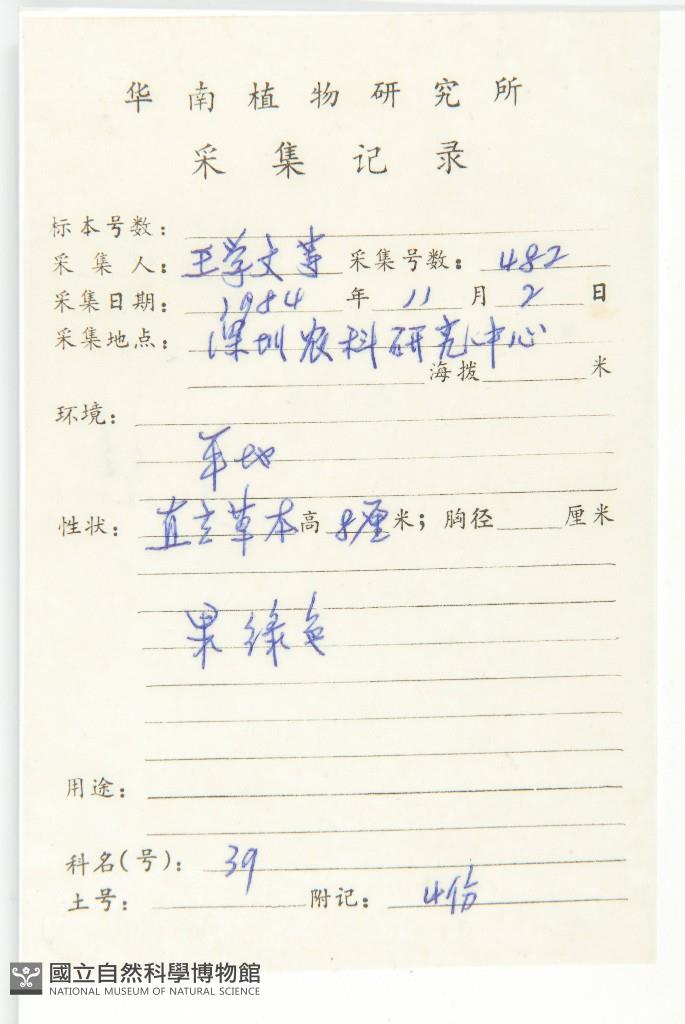 华南植物研究所
采集记录
标本号数：
采集人：王学文等 采集号数：482
采集日期：1984年11月2日
采集地点：深圳农科研究中心
海拨 米
环境：
平地
性状：直立草本高8厘米；胸径 厘米
果绿色
用途：
科名(号)：39
土号： 附记：4份
國立自然科學博物館
NATIONAL MUSEUM OF NATURAL SCIENCE